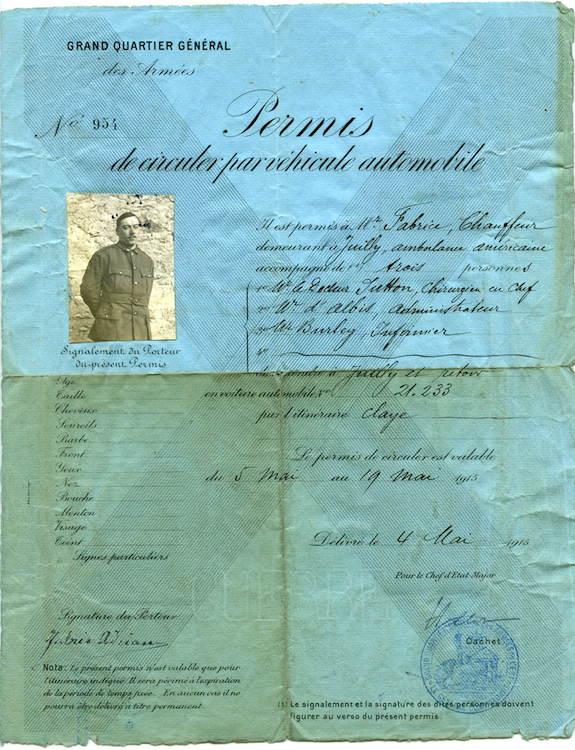 GRAND QUARTIER GÉNÉRAL
des Armées
No 954
Permis
de circuler par véhicule automobile
Il est permis à Mr Fabrice, Chauffeur
demeurant à Juilly, ambulance américaine
accompagné de (1) trois personnes
1o Mr le Docteur Jutton, Chirurgien en Chef
2o Mr d'Albis, Administrateur
3o Mr Burley, Infirmier
4o
Signalement du Porteur
du présent Permis
de se rendre à Juilly et retour
en voiture automobile No 21.233
par l'itinéraire Claye
Age
Taille
Cheveux
Sourcils
Barbe
Front
Yeux
Nez
Bouche
Menton
Visage
Teint
Signes particuliers
Le permis de circuler est valable
du 5 Mai au 19 Mai 1915
Délivré le 4 Mai 1915
Pour le Chef d'Etat-Major
Signature du Porteur
Cachet
Nota: Le présent permis n'est valable que pour
l'itinéraire indiqué. Il sera périmé à l'expiration
de la période de temps fixée. En aucun cas il ne
pourra être délivré à titre permanent.
(1) Le signalement et la signature des dites personnes doivent
figurer au verso du présent permis.